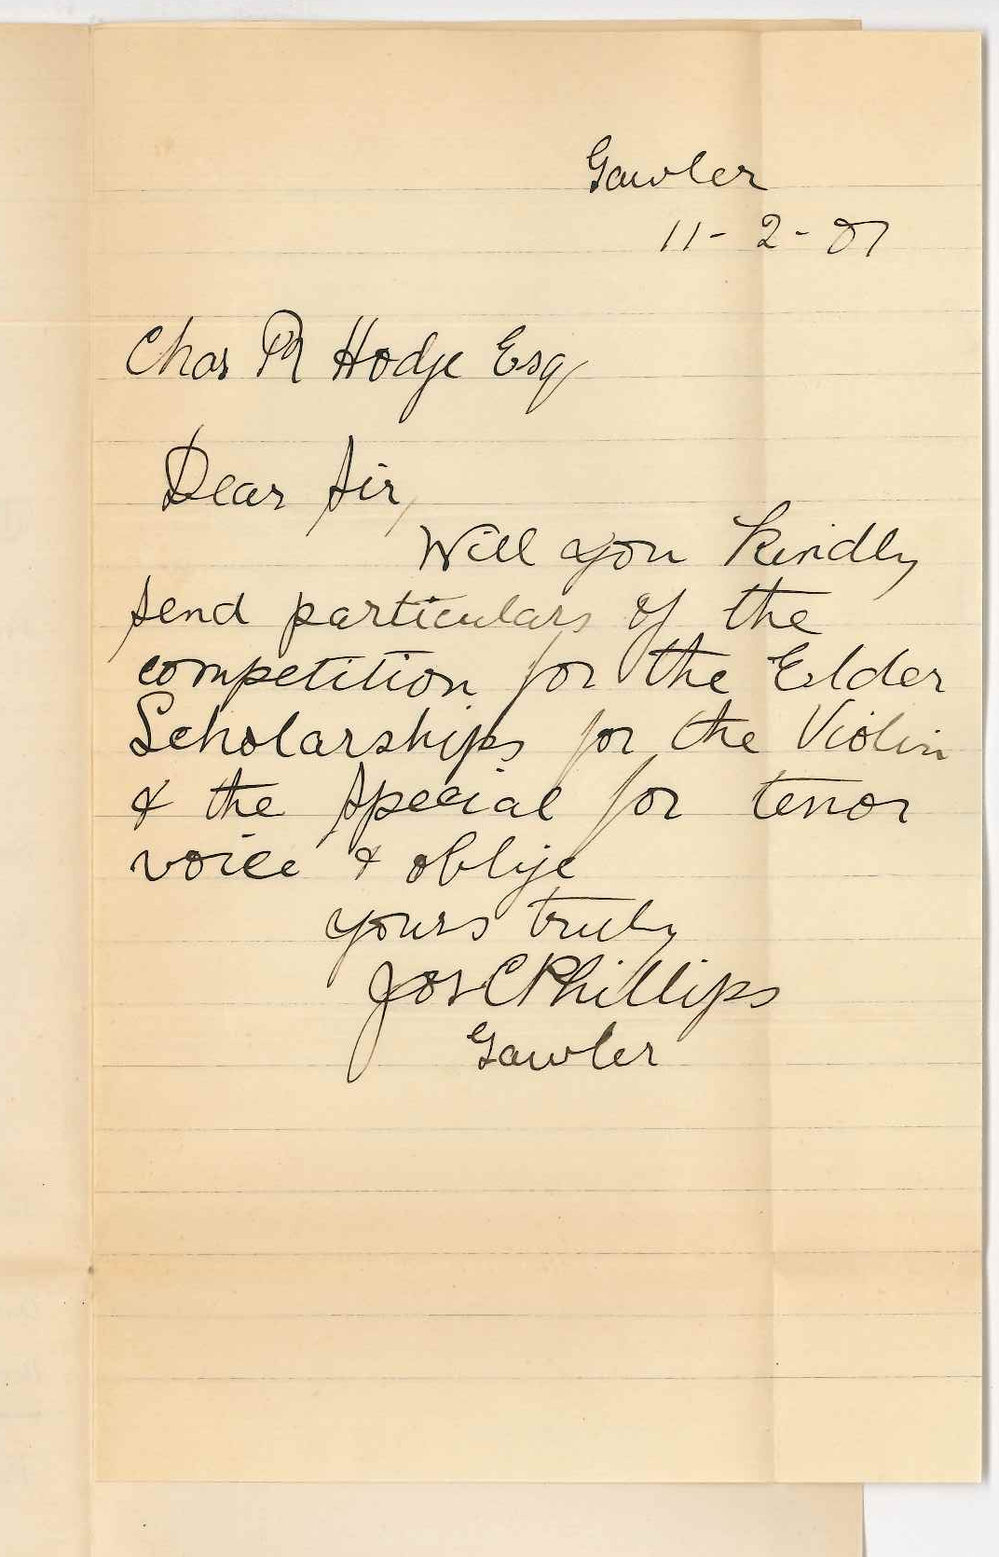 Gawler
11-2-07
Chas R Hodge Esq
Dear Sir,
Will you kindly
send particulars of the
competition for the Elder
Scholarships for the Violin
& the special for tenor
voice & oblige
yours truly
Jos C Phillips
Gawler